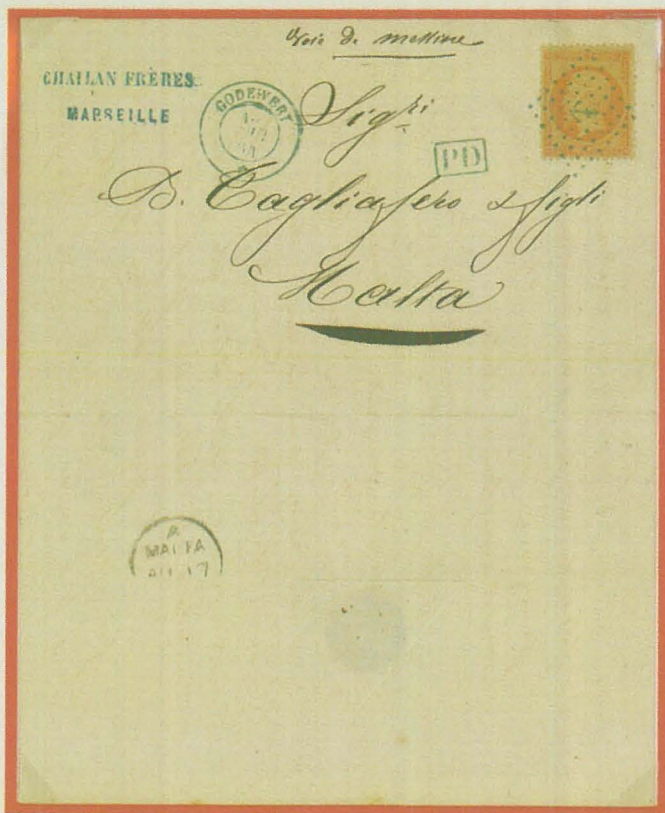 Voie de messine
CHAILAN FRÈRES
MARSEILLE
GODEWERT
Sig.ri
PD
B. Tagliafero & figli
Malta
A
MALTA
AU 17